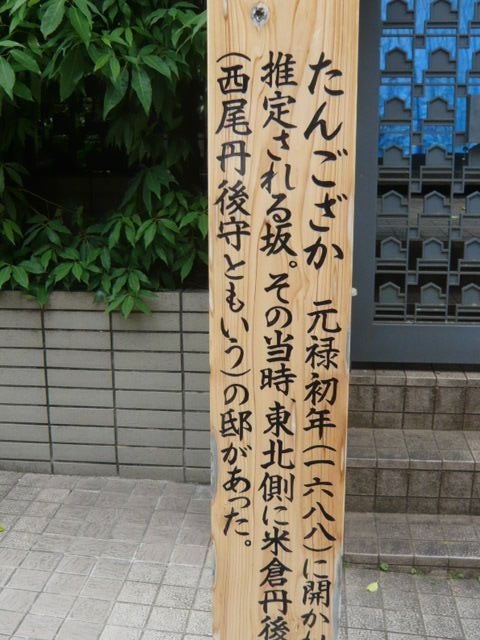 たんござか 元禄初年(一六八八)に開か
推定される坂。その当時、東北側に米倉丹後
(西尾丹後守ともいう)の邸があった。